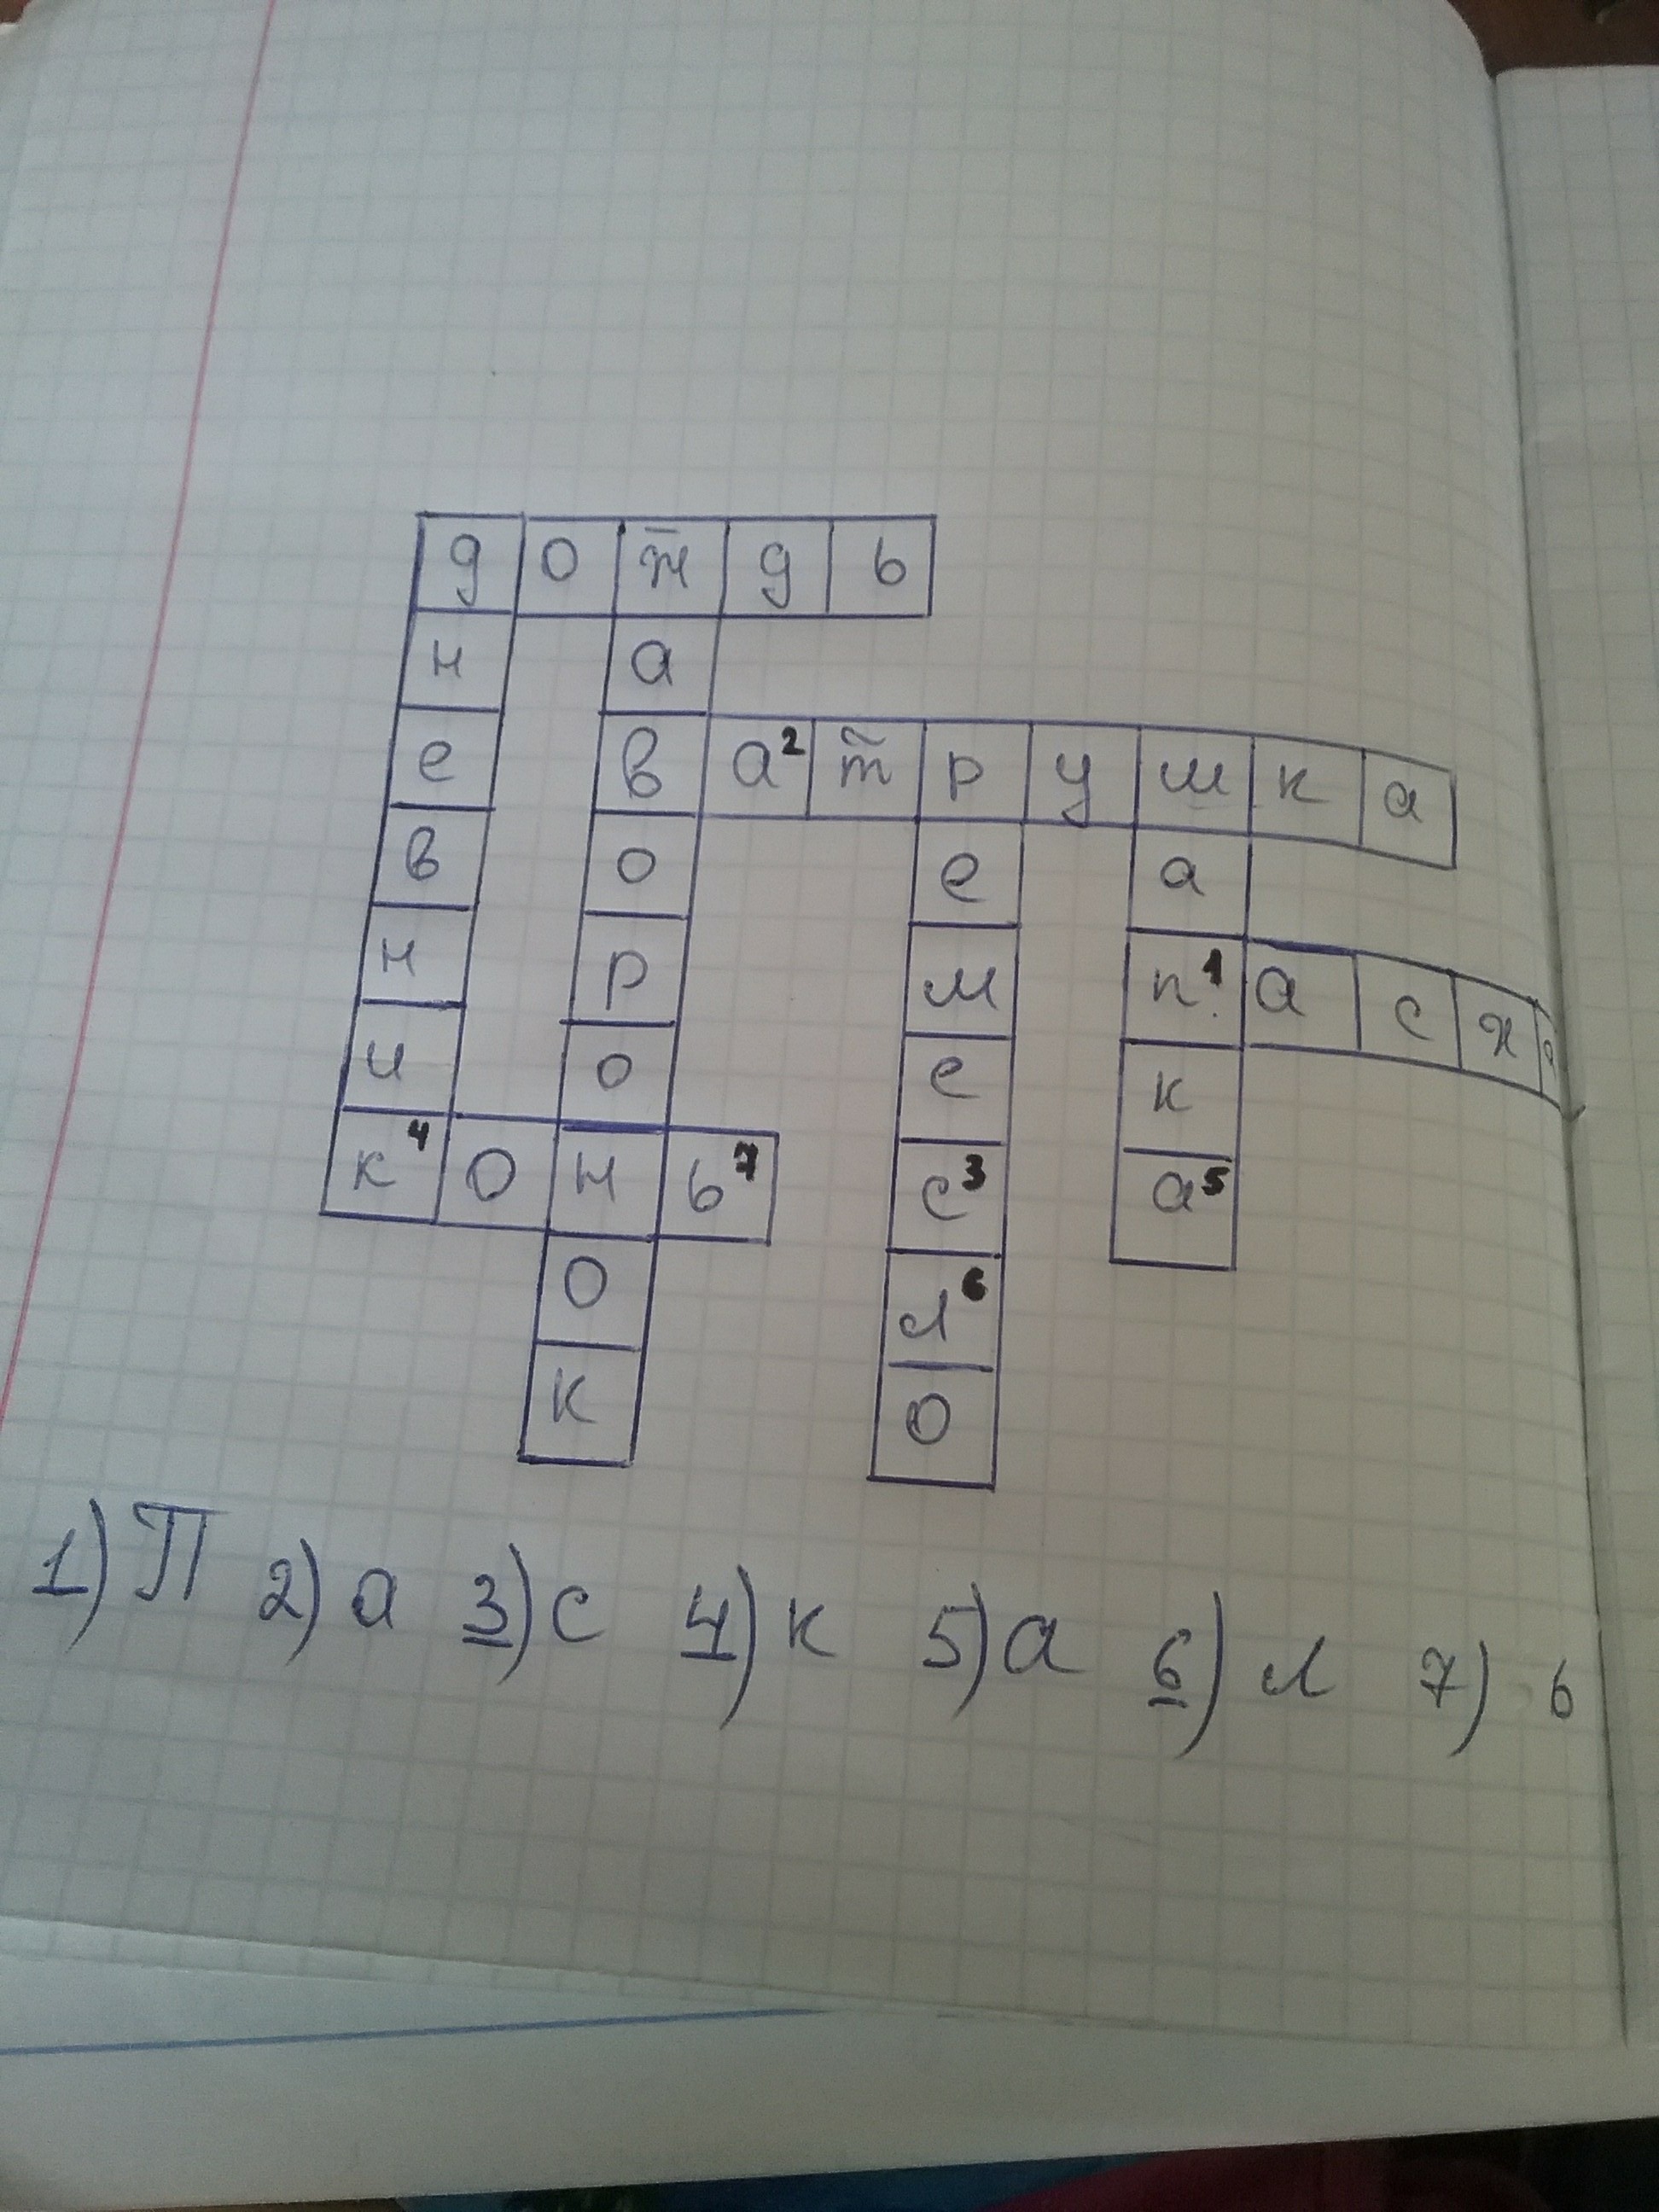 д о ж д ь
н а
е в а² т р у ш к а
в о е а
н р м п¹ а с х
и о е к
к⁴ о н ь⁷ с³ а⁵
о л⁶
к о
1) П 2) а 3) с 4) к 5) а 6) л 7) ь